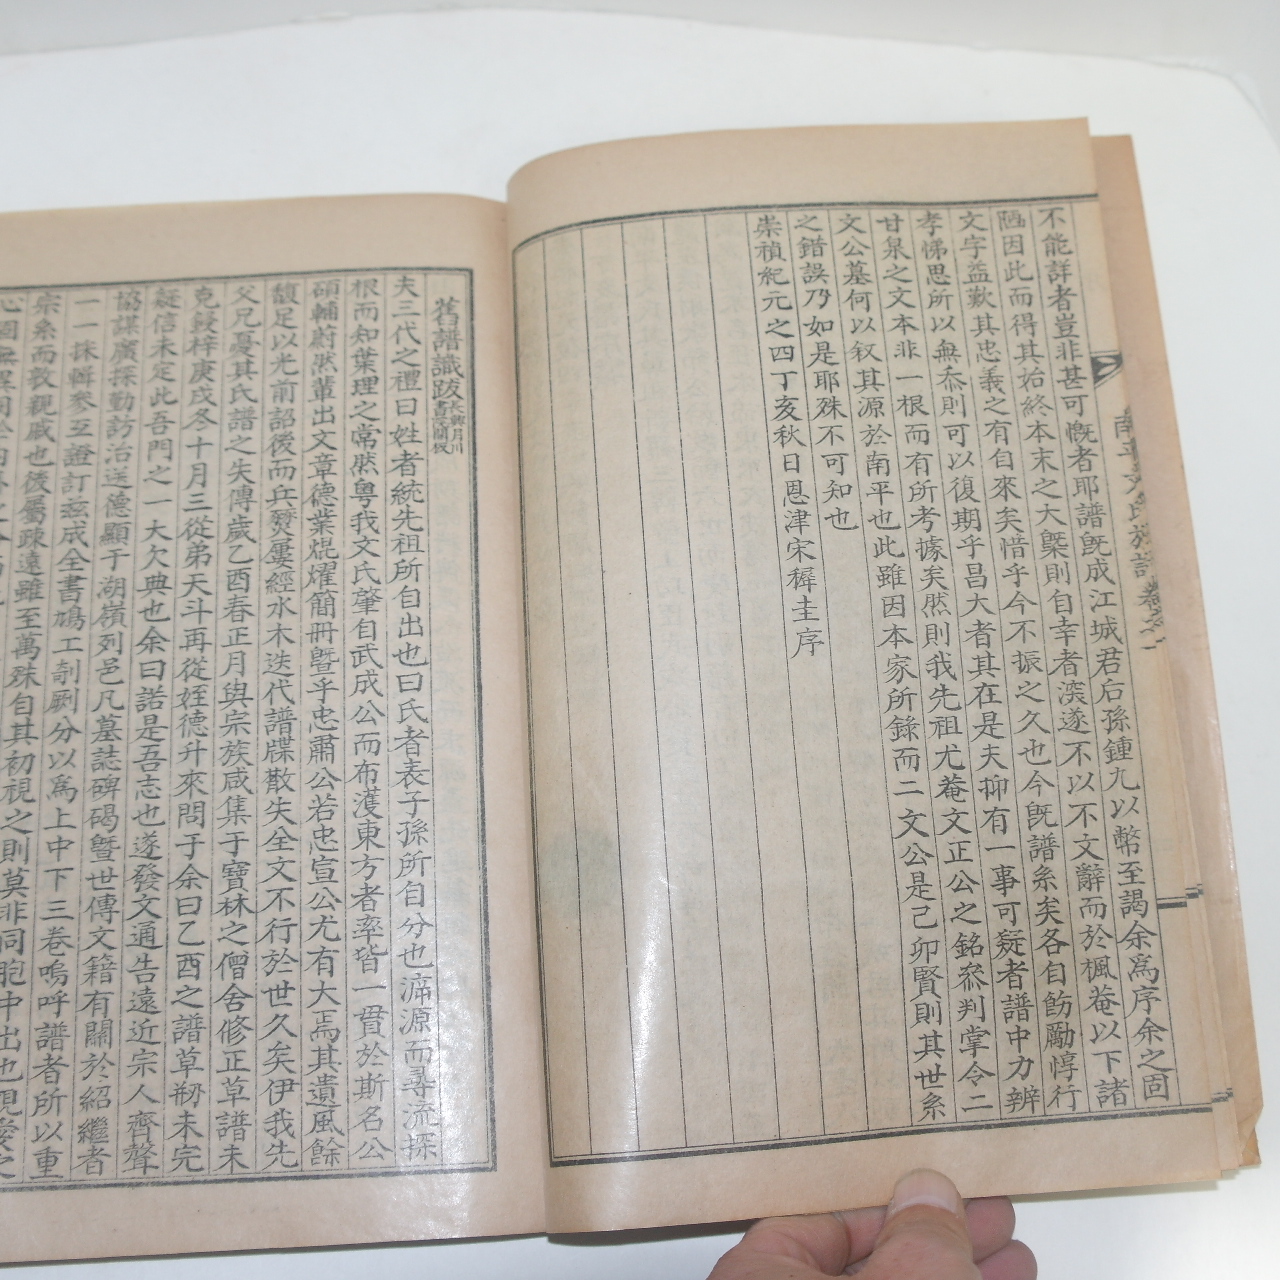 不能詳者豈非甚可慨者耶譜旣成江城君后孫鍾九以幣至謁余爲序余之固
陋因此而得其始終本末之大槩則自幸者深遂不以不文辭而於楓菴以下諸
文字益歎其忠義之有自來矣惜乎今不振之久也今旣譜系矣各自飭勵惇行
孝悌思所以無忝則可以復期乎昌大者其在是夫抑有一事可疑者譜中力辨
甘泉之文本非一根而有所考據矣然則我先祖尤菴文正公之銘叅判掌令二
文公墓何以叙其源於南平也此雖因本家所錄而二文公是己卯賢則其世系
之錯誤乃如是耶殊不可知也
崇禎紀元之四丁亥秋日恩津宋穉圭序
南平文氏族譜 卷之一
舊譜識跋
夫三代之禮曰姓者統先祖所自出也曰氏者表子孫所自分也㴑源而尋流探
根而知葉理之常然粤我文氏肇自武成公而布濩東方者率皆一貫於斯名公
碩輔蔚然輩出文章德業焜燿簡冊曁乎忠肅公若忠宣公尤有大焉其遺風餘
馥足以光前詔後而兵燹屢經水木迭代譜牒散失全文不行於世久矣伊我先
父兄憂其氏譜之失傳歲乙酉春正月與宗族咸集于寶林之僧舍修正草譜未
克鋟梓庚戌冬十月三從弟天斗再從姪德升來問于余曰乙酉之譜草刱未完
疑信未定此吾門之一大欠典也余曰諾是吾志也遂發文通告遠近宗人齊聲
協謀廣探勤訪治送德顯于湖嶺列邑凡墓誌碑碣曁世傳文籍有關於紹繼者
一一採輯參互證訂玆成全書鳩工剞劂分以爲上中下三卷嗚呼譜者所以重
宗系而敦親戚也後屬疎遠雖至萬殊自其初視之則莫非同胞中出也